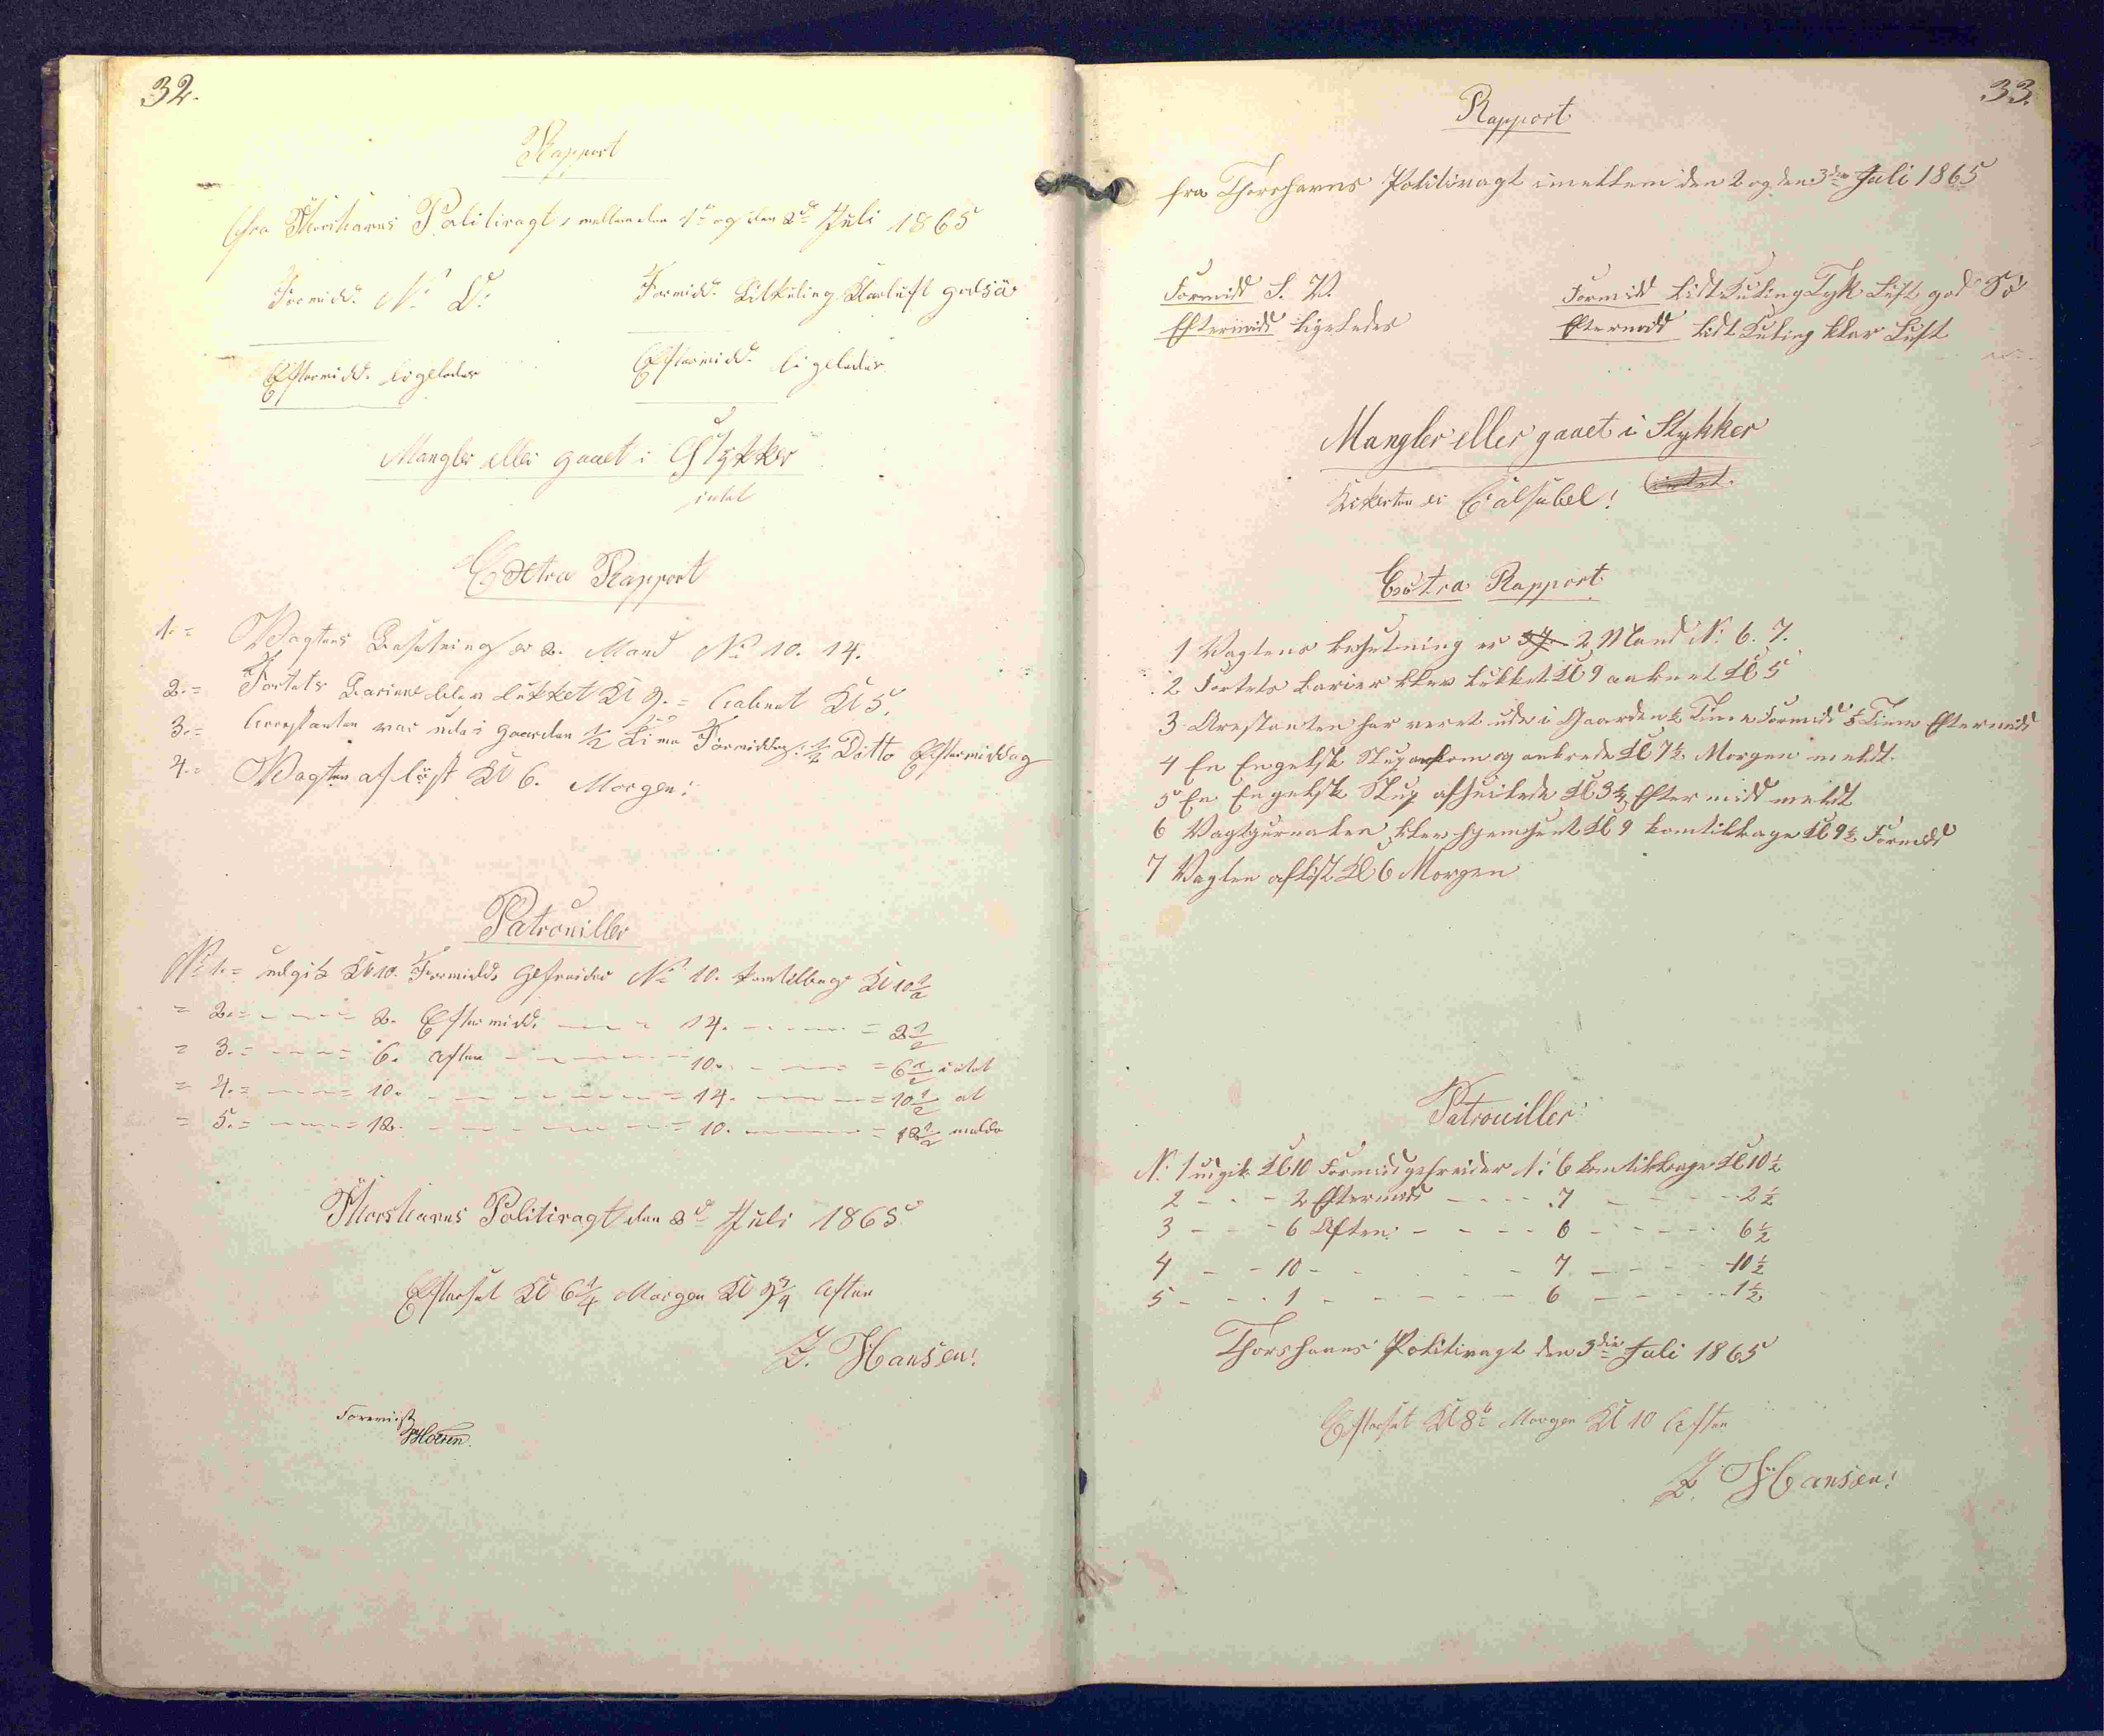 32.
Rapport
fra Thorshavns Politivagt, mellem den 1ste og den 2den Juli 1865
Formidd. N. O: Formidd. Litkuling Klarluft god Sö
Eftermidd. ligeledes Eftermidd. ligeledes
Mangler eller gaaet i Stykker
intet
Extra Rapport
1. = Wagtens Besetning er 2. Mand No 10. 14.
2. = Fortets Bariere blev lukket Kl 9. = aabnet Kl 5.
3. = Arrestanten var ude i Gaarden 1/2 Time Formiddag: 1/2 Ditto Eftermiddag
4. = Wagten aflöst Kl 6. Morgen:
Patrouiller
No 1. = udgik Kl 10. Formidd. Gefreider No 10. kom tilbage Kl 10 1/2
= 2. = 2. Eftermidd. 14. = 2 1/2
= 3. = 6. Aften 10. = 6 1/2 intet
= 4. = 10. = 14. = 10 1/2 at
= 5. = 12. = 10. = 12 1/2 melde
Thorshavns Politivagt den 2den Juli 1865
Efterset Kl 6 1/4 Morgen Kl 9 3/4 Aften
Z. Hansen:
Forevist
33.
Rapport
fra Thorshavns Politivagt imellem den 2 og den 3die Juli 1865
Formidd S. V. Formidd lidt Kuling Tyk Luft god Sö
Eftermidd ligeledes Eftermidd lidt Kuling klar Luft
Mangler eller gaaet i Stykker
Kikerten er intet.
Extra Rapport
1 Vagtens besetning er 2 Mand N: 6. 7.
2 Fortets barier blev lukket Kl 9 aabnet Kl 5
3 Arestanten har veret ude i Gaarden 1/2 Time Formidd 1/2 Time Eftermidd
4 En Engelsk Slup ankom og ankrede Kl 7 1/2 Morgen meldt.
5 En Engelsk Slup afseilede Kl 3 1/2 Eftermidd meldt
6 Vagtjurnalen blev hjemsent Kl 9 kom tilbage Kl 9 1/2 Formidd
7 Vagten aflöst Kl 6 Morgen
Patrouiller
N: 1 udgik Kl 10 Formidd gefreider N: 6 kom tilbage Kl 10 1/2
2 - - - 2 Eftermidd - - - - 7 - - - - 2 1/2
3 - - - 6 Aften: - - - - 6 - - - - 6 1/2
4 - - 10 - - - - 7 - - - - 10 1/2
5 - - - 1 - - - - 6 - - - - 1 1/2
Thorshavns Politivagt den 3die Juli 1865
Efterset Kl 8 Morgen Kl 10 Aften
Z. Hansen: